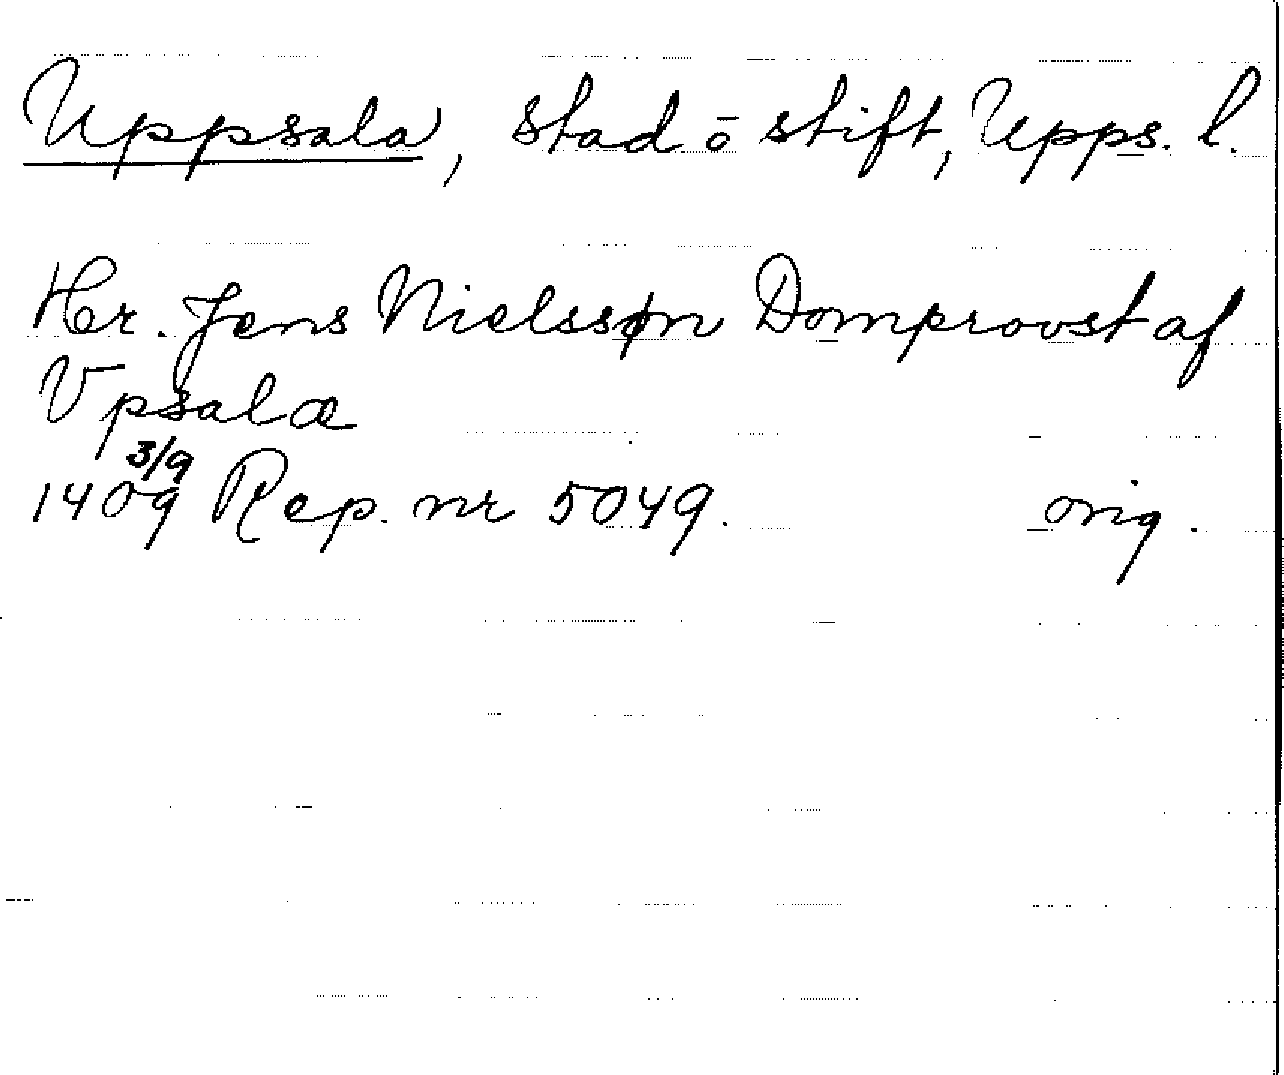 Uppsala, stad ō stift, Upps. l.
Her. Jens Nielssøn Domprovst af
Vpsalæ
3/9
1409 Rep. nr 5049. orig.